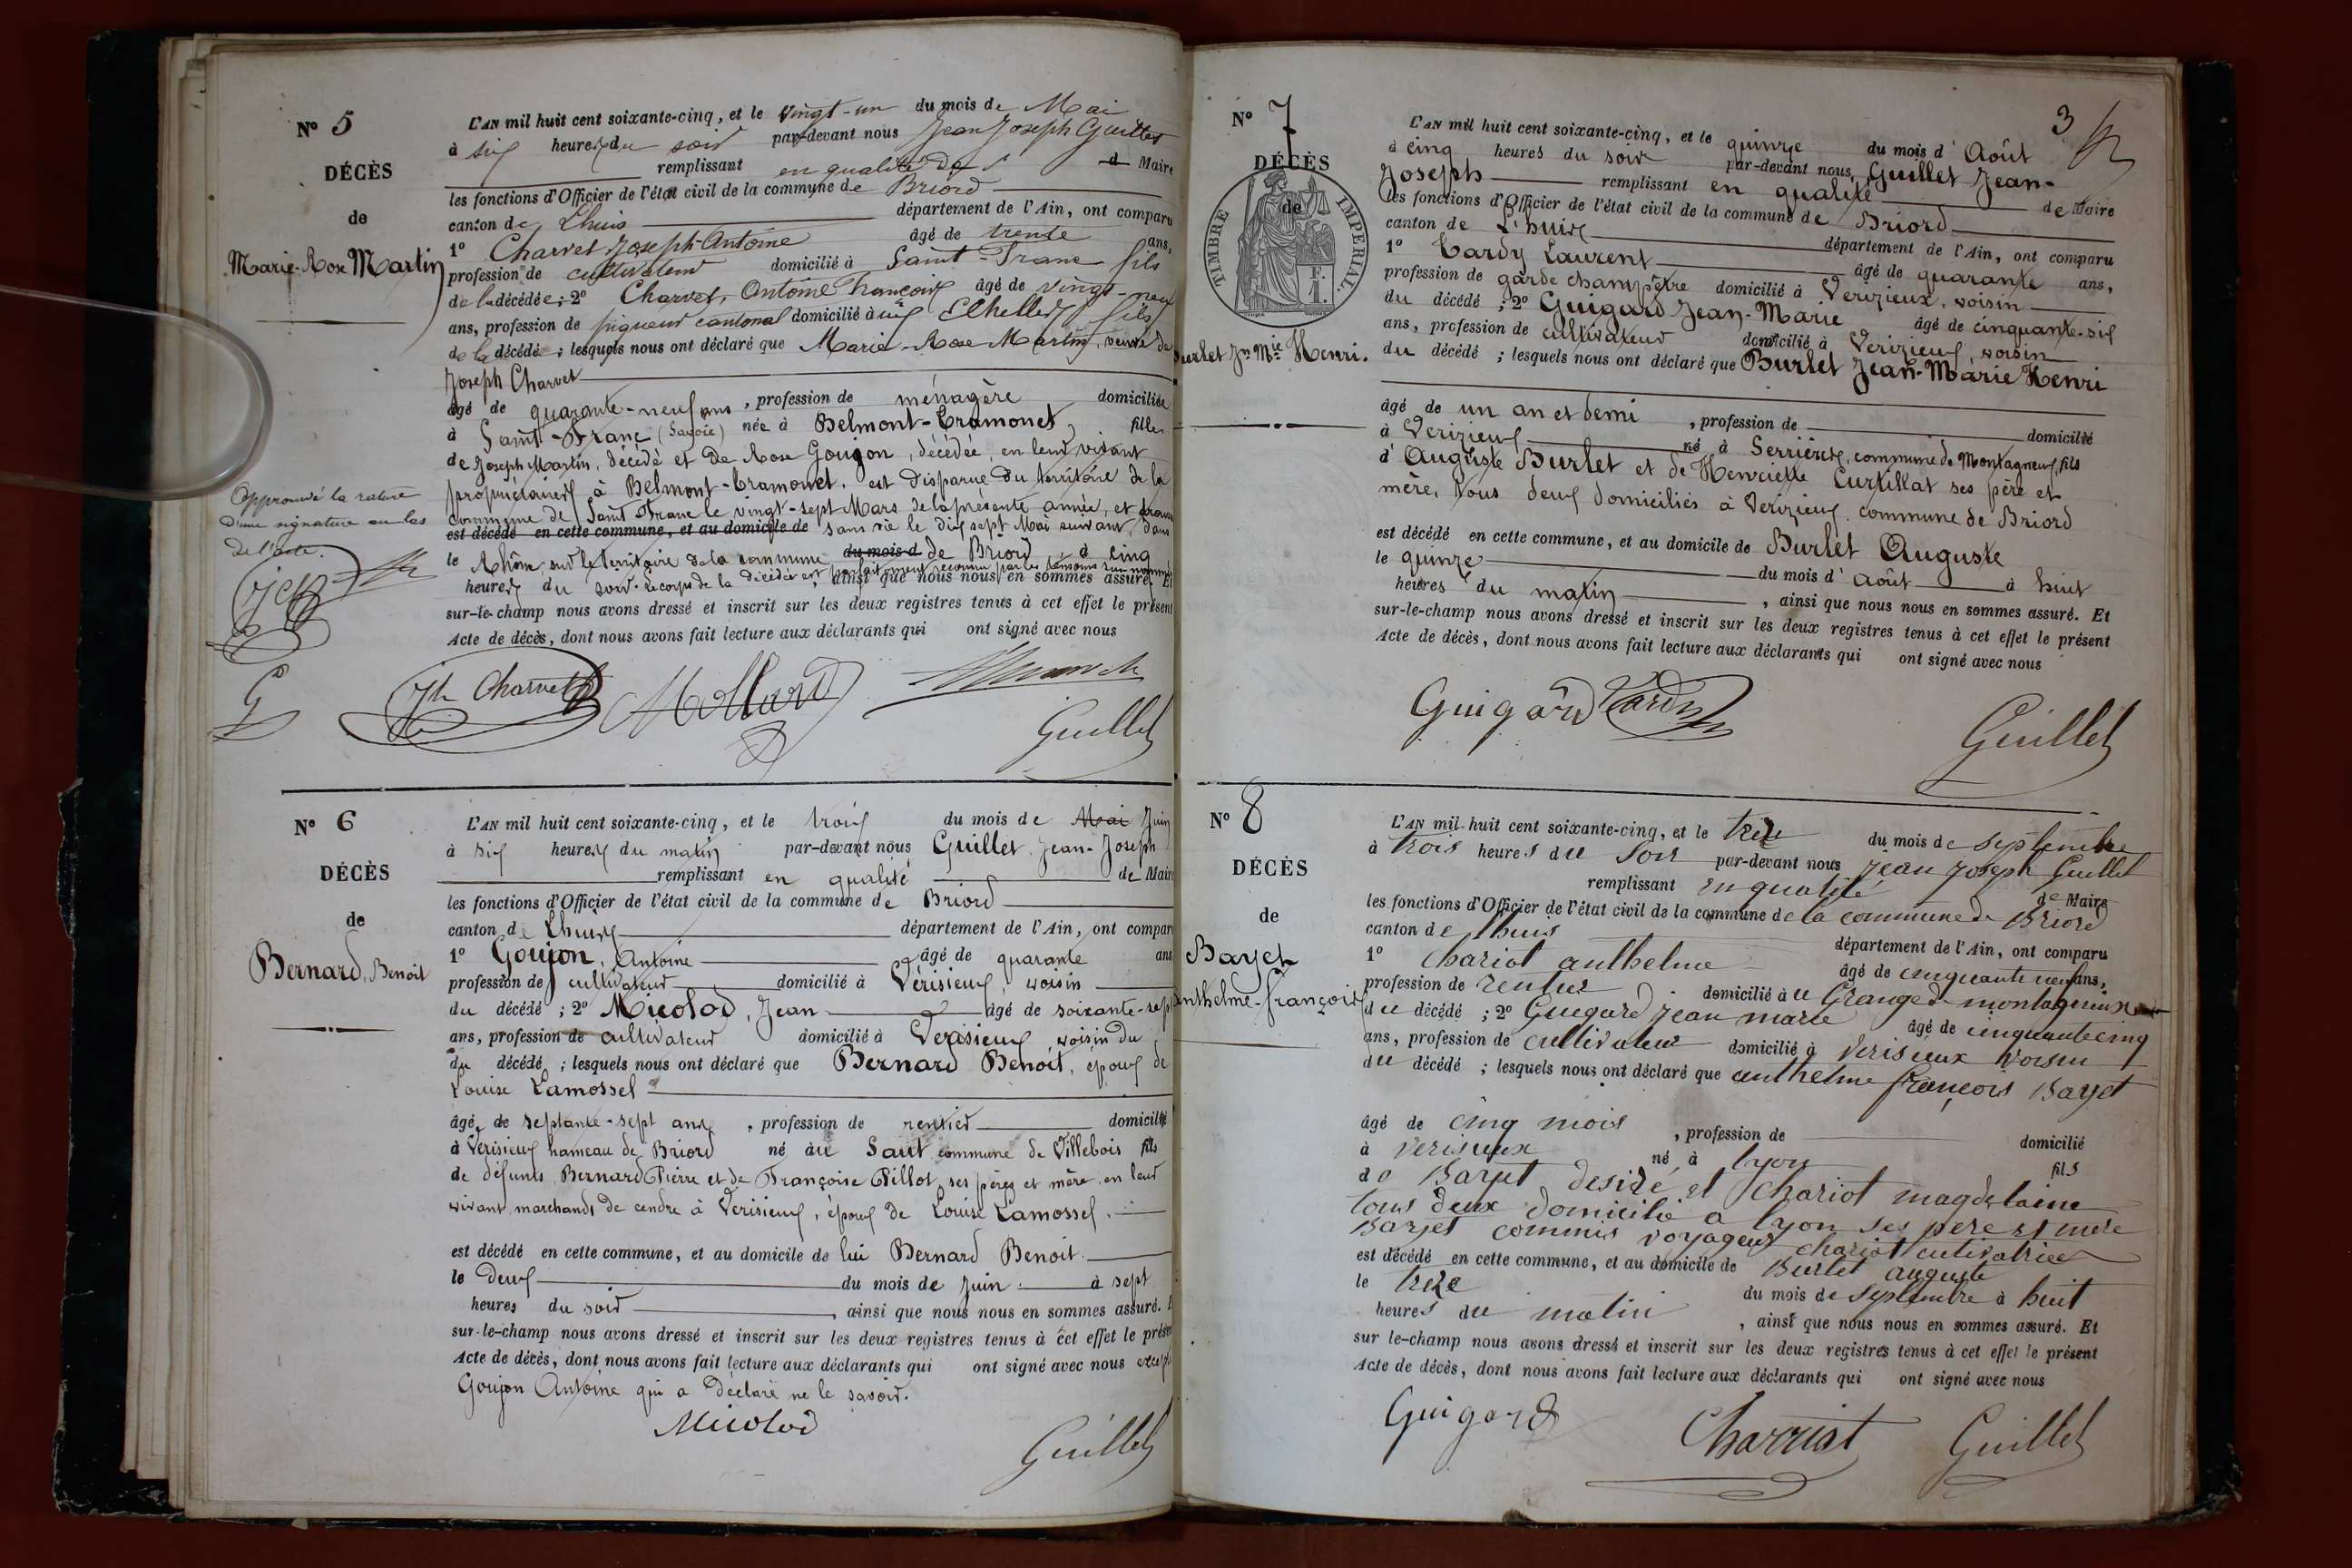 N° 5
DÉCÈS
de
Marie-Rose Martin
L'AN mil huit cent soixante-cinq, et le vingt-un du mois de Mai
à six heures du soir par-devant nous Jean Joseph Guillet
remplissant en qualité de d Maire
les fonctions d'Officier de l'état civil de la commune de Briord
canton de Lhuis département de l'Ain, ont comparu
1° Charvet Joseph-Antoine âgé de trente ans,
profession de cultivateur domicilié à Saint-Franc fils
de la décédée; 2° Charvet, Antoine François âgé de vingt-neuf
ans, profession de piqueur cantonal domicilié à fils
de la décédée; lesquels nous ont déclaré que Marie-Rose Martin, veuve de
Joseph Charvet
âgé de quarante-neuf ans, profession de ménagère domiciliée
à Saint-Franc (Savoie) née à Belmont-Tramonet, fille
de Joseph Martin, décédé et de Rose Goujon, décédée, en leur vivant
propriétaires à Belmont-Tramonet, est disparue du territoire de la
commune de Saint Franc le vingt-sept Mars de la présente année, et trouvée
est décédé en cette commune, et au domicile de sans vie le dix sept Mai suivant, dans
le Rhône sur le territoire de la commune du mois d de Briord, à cinq
heures du soir. Le corps de la décédée est parfaitement reconnu par les témoins sus-nommés, ainsi que nous nous en sommes assuré. Et
sur-le-champ nous avons dressé et inscrit sur les deux registres tenus à cet effet le présent
Acte de décès, dont nous avons fait lecture aux déclarants qui ont signé avec nous
Approuvé la rature
d'une signature au bas
de l'acte.
G
Jh Charvet Mollard
Guillet
N° 6
DÉCÈS
de
Bernard, Benoit
L'AN mil huit cent soixante-cinq, et le trois du mois de Mai Juin
à six heures du matin par-devant nous Guillet Jean-Joseph
remplissant en qualité de Maire
les fonctions d'Officier de l'état civil de la commune de Briord
canton de Lhuis département de l'Ain, ont comparu
1° Goujon, Antoine âgé de quarante ans
profession de cultivateur domicilié à Vérisieux, voisin
du décédé; 2° Micolod, Jean âgé de soixante-sept
ans, profession de cultivateur domicilié à Verisieux, voisin du
du décédé; lesquels nous ont déclaré que Bernard Benoit, époux de
Louise Lamossel
âgé de septante-sept ans, profession de rentier domicilié
à Verisieux hameau de Briord né au Saut commune de Villebois fils
de défunts Bernard Pierre et de Françoise Pillot, ses pères et mère en leur
vivant marchands de cendre à Verisieux, époux de Louise Lamossel.
est décédé en cette commune, et au domicile de lui Bernard Benoit
le deux du mois de Juin à sept
heures du soir, ainsi que nous nous en sommes assuré. E
sur-le-champ nous avons dressé et inscrit sur les deux registres tenus à cet effet le présen
Acte de décès, dont nous avons fait lecture aux déclarants qui ont signé avec nous excepté
Goujon Antoine qui a déclaré ne le savoir.
Micolod
Guillet
3
N° 7
DÉCÈS
de
TIMBRE IMPERIAL.
F.
1.
Burlet Jn Mie Henri.
L'AN mil huit cent soixante-cinq, et le quinze du mois d'Août
à cinq heures du soir par-devant nous Guillet Jean-
Joseph remplissant en qualité de Maire
les fonctions d'Officier de l'état civil de la commune de Briord
canton de L'huis département de l'Ain, ont comparu
1° Tardy Laurent âgé de quarante ans,
profession de garde champêtre domicilié à Verizieux, voisin
du décédé; 2° Guigard Jean-Marie âgé de cinquante-six
ans, profession de cultivateur domicilié à Verizieux, voisin
du décédé; lesquels nous ont déclaré que Burlet Jean-Marie Henri
âgé de un an et demi, profession de domicilié
à Verizieux né à Serrières, commune de Montagneux, fils
d'Auguste Burlet et de Henriette Curtillat ses père et
mère, tous deux domiciliés à Verizieux commune de Briord
est décédé en cette commune, et au domicile de Burlet Auguste
le quinze du mois d'Août à huit
heures du matin, ainsi que nous nous en sommes assuré. Et
sur-le-champ nous avons dressé et inscrit sur les deux registres tenus à cet effet le présent
Acte de décès, dont nous avons fait lecture aux déclarants qui ont signé avec nous
Guigard Tardy
Guillet
N° 8
DÉCÈS
de
Bayet
Anthelme-François
L'AN mil huit cent soixante-cinq, et le treze du mois de septembre
à trois heures du soir par-devant nous jean joseph Guillet
remplissant en qualité de Maire
les fonctions d'Officier de l'état civil de la commune de la commune de Briord
canton de lhuis département de l'Ain, ont comparu
1° chariot anthelme âgé de cinquante neuf ans,
profession de rentier domicilié à Grange de montagnieux
du décédé; 2° Guigard jean marie âgé de cinquante cinq
ans, profession de cultivateur domicilié à Verisieux voisin
du décédé; lesquels nous ont déclaré que anthelme françois Bayet
âgé de cinq mois, profession de domicilié
à verisieux né à lyon fils
de Bayet desiré et chariot magdelaine
tous deux domicilié a lyon ses pere et mere
Bayet commis voyageur chariot cultivatrice
est décédé en cette commune, et au domicile de Burlet auguste
le treze du mois de septembre à huit
heures du matin, ainsi que nous nous en sommes assuré. Et
sur le-champ nous avons dressé et inscrit sur les deux registres tenus à cet effet le présent
Acte de décès, dont nous avons fait lecture aux déclarants qui ont signé avec nous
Guigard
Charriot Guillet